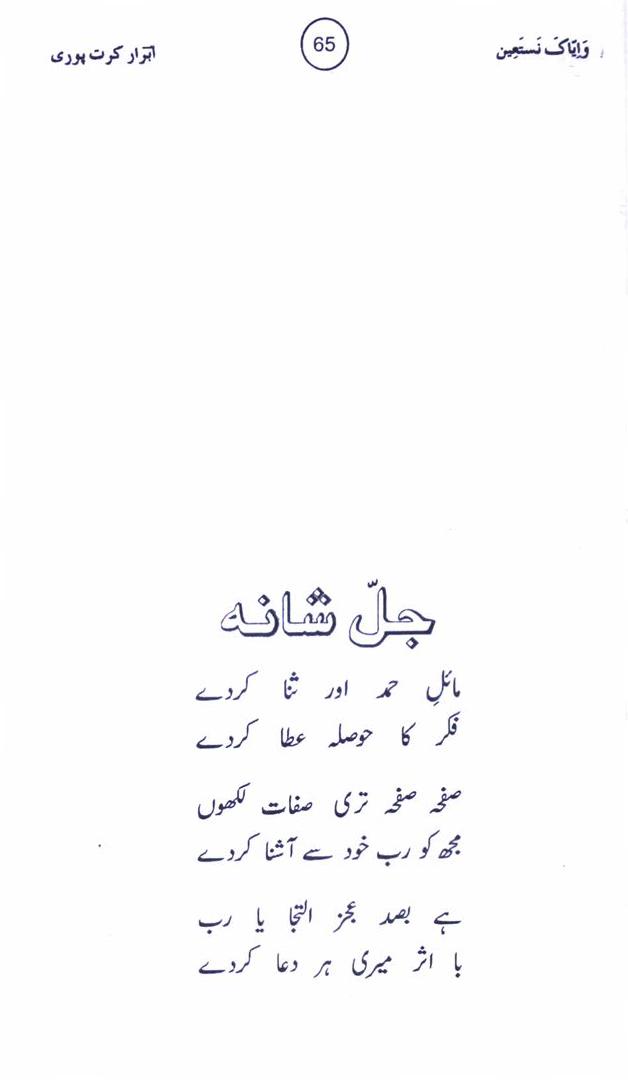 وَاِیّاکَ نَستَعِین
65
ابرار کرت پوری
جلّ شانہ
مائلِ حمد اور ثنا کردے
فکر کا حوصلہ عطا کردے
صفحہ صفحہ تری صفات لکھوں
مجھ کو رب خود سے آشنا کردے
ہے بصد عجز التجا یا رب
با اثر میری ہر دعا کردے